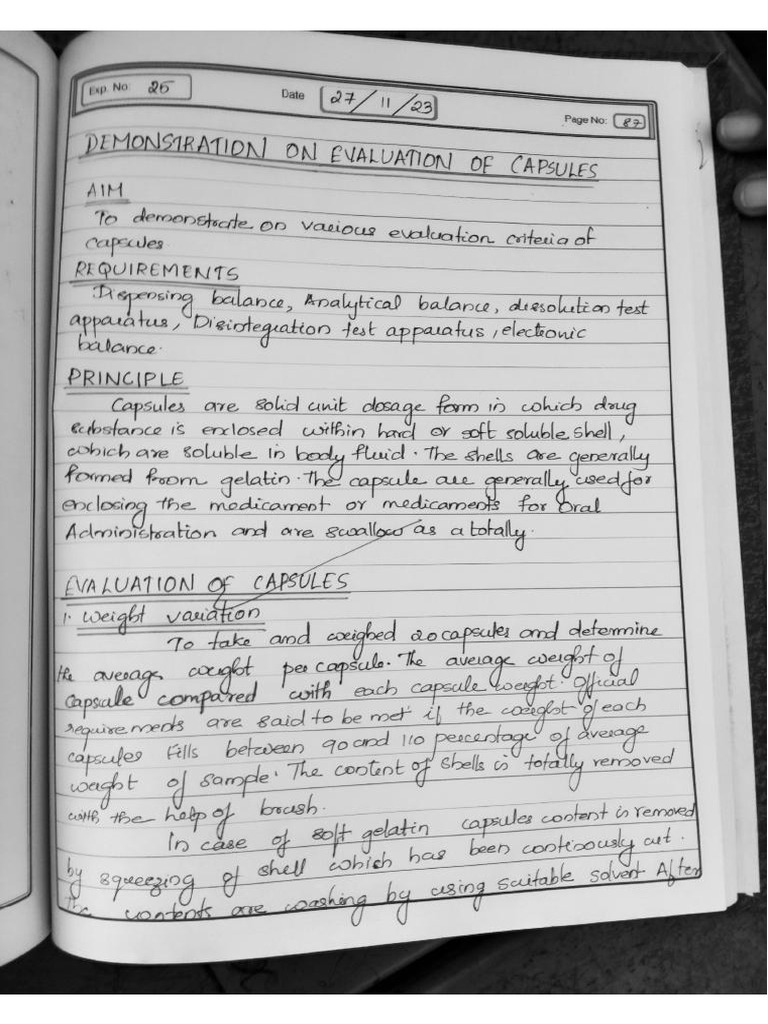 Exp. No: 25
Date 27/11/23
Page No: 87
DEMONSTRATION ON EVALUATION OF CAPSULES
AIM
To demonstrate on various evaluation criteria of
capsules.
REQUIREMENTS
Dispensing balance, Analytical balance, dissolution test
apparatus, Disintegration test apparatus, electronic
balance.
PRINCIPLE
Capsules are solid unit dosage form in which drug
substance is enclosed within hard or soft soluble shell,
which are soluble in body fluid. The shells are generally
formed from gelatin. The capsule are generally used for
enclosing the medicament or medicaments for oral
Administration and are swallow as a totally.
EVALUATION OF CAPSULES
1. Weight variation
To take and weighed 20 capsules and determine
the average weight per capsule. The average weight of
capsule compared with each capsule weight. Official
requirements are said to be met if the weight of each
capsules Fills between 90 and 110 percentage of average
weight of sample. The content of shells is totally removed
with the help of brush.
In case of soft gelatin capsules content is removed
by squeezing of shell which has been continously cut.
The contents are washing by using suitable solvent After